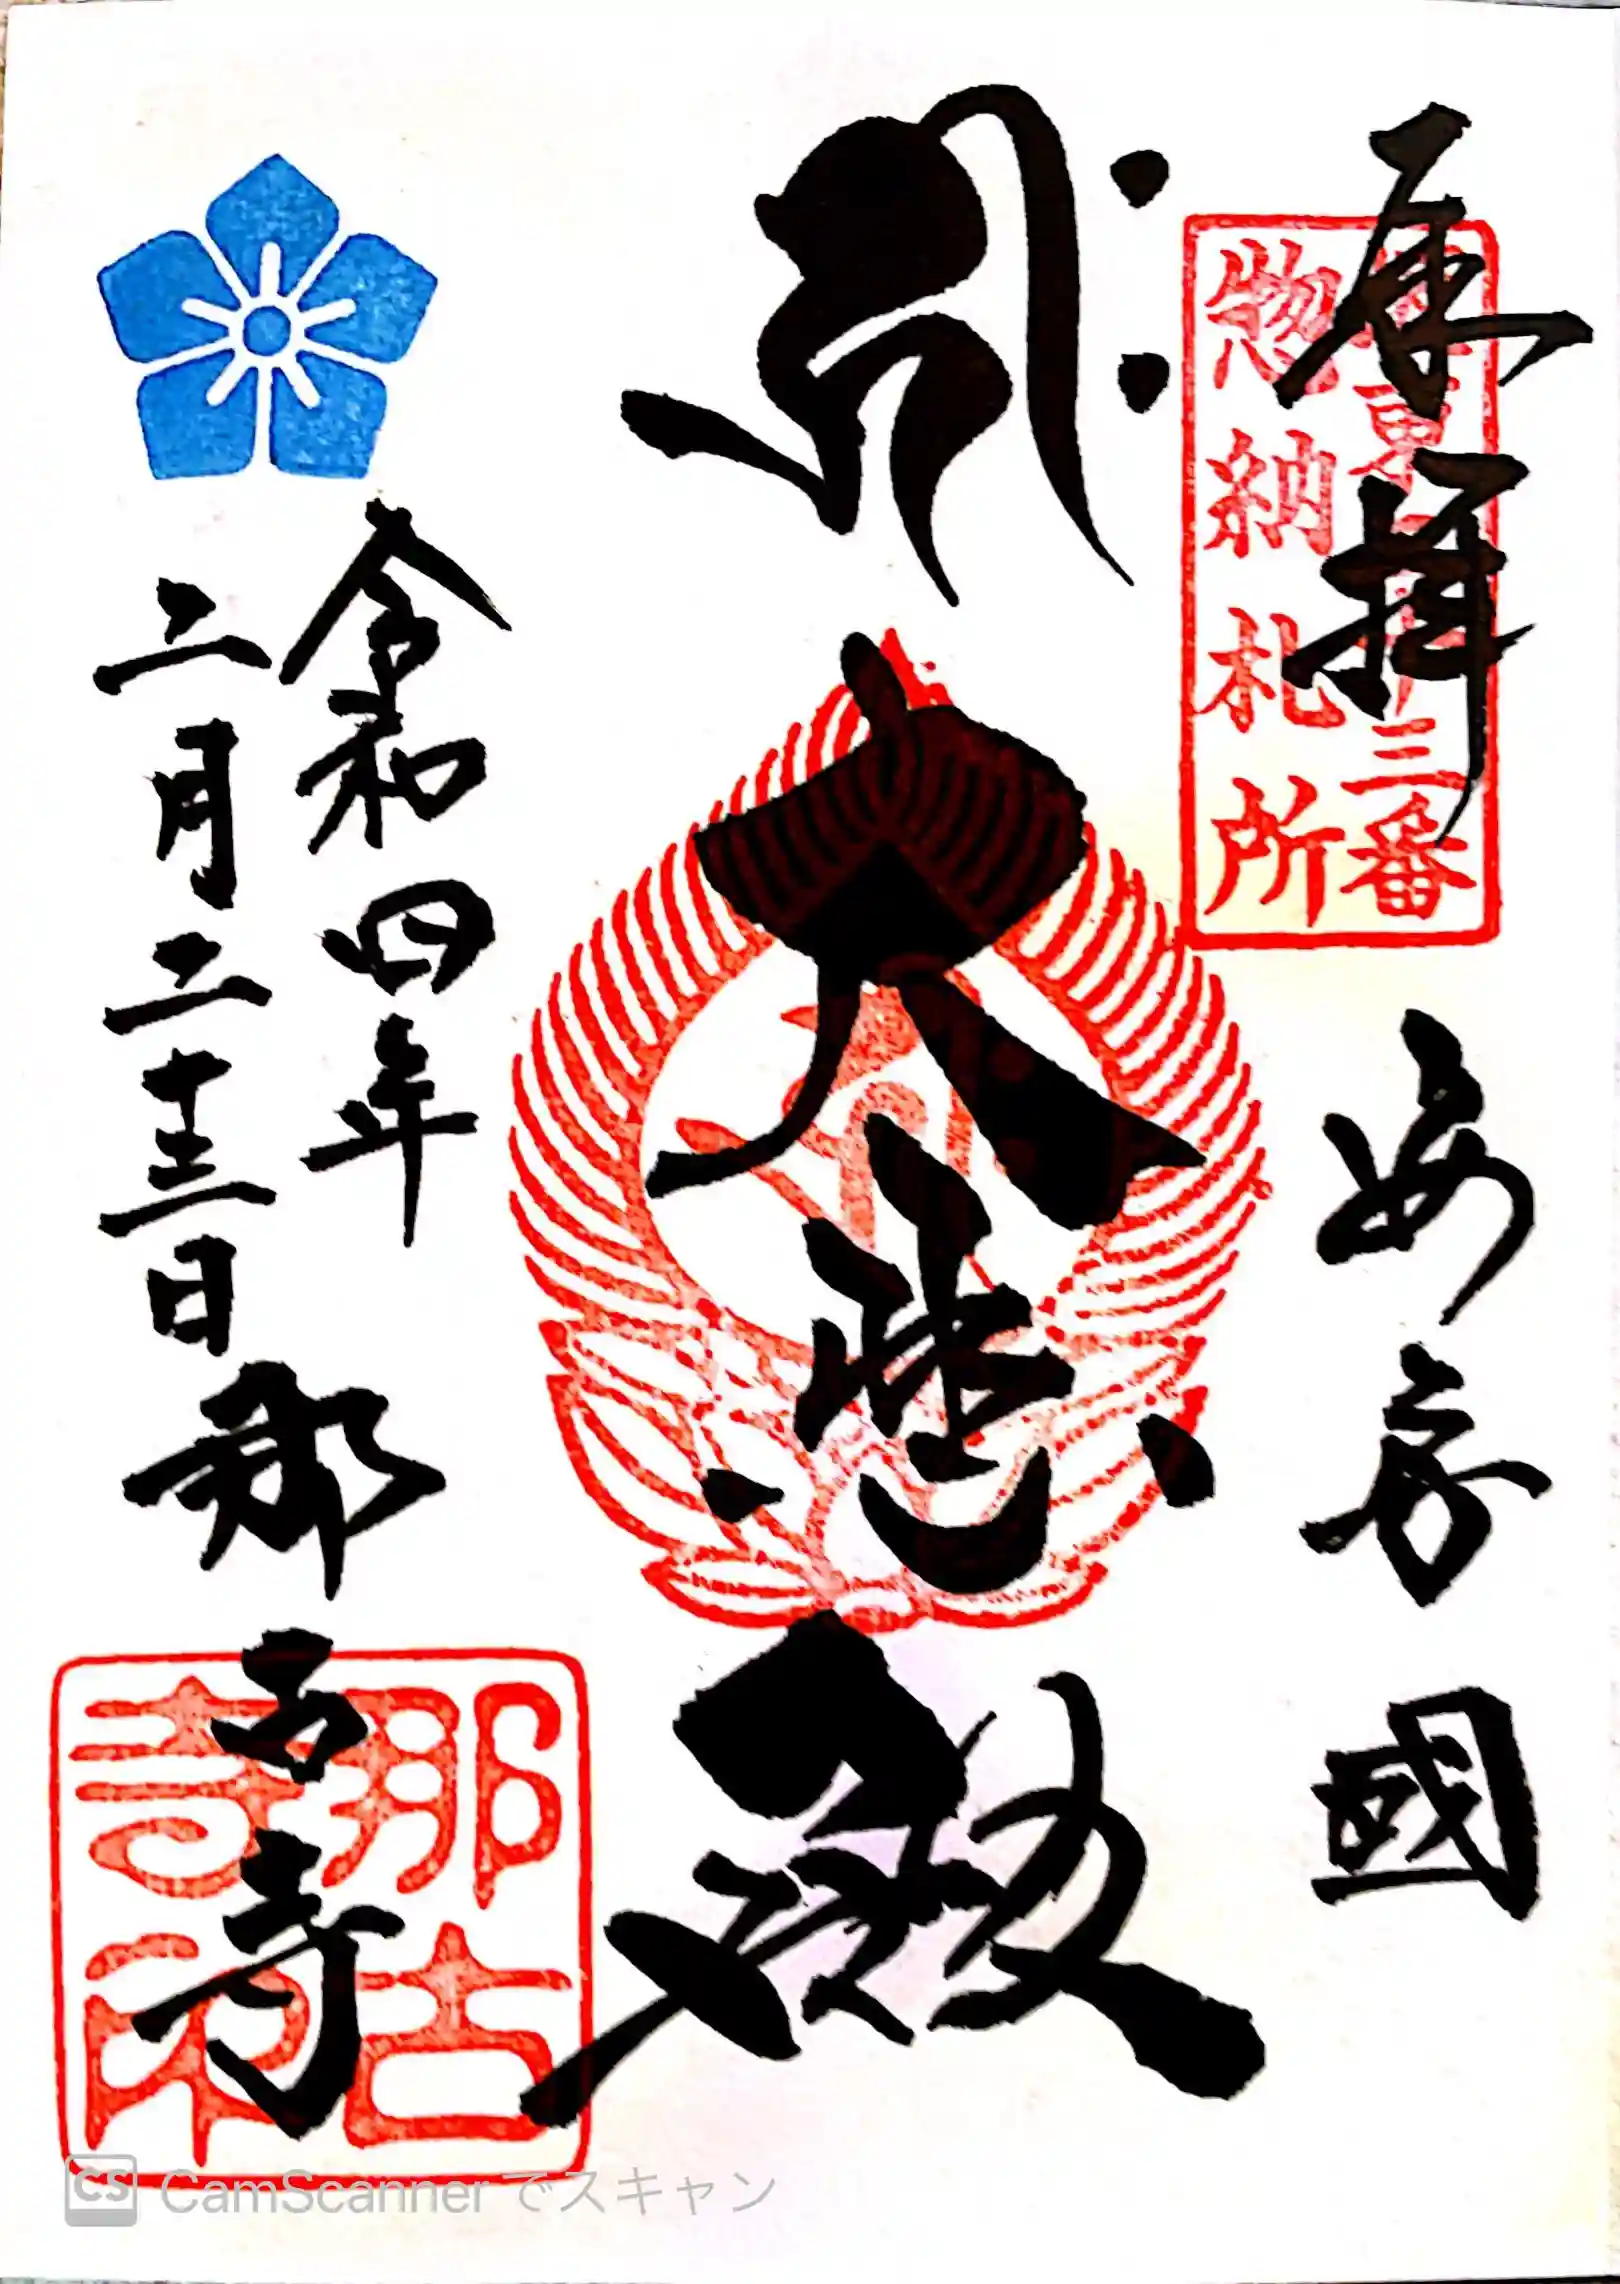 奉拝
安房國
三番
惣納札所
सः
大悲殿
令和四年
二月二十三日
那古寺
那古
寺印
CS CamScannerでスキャン